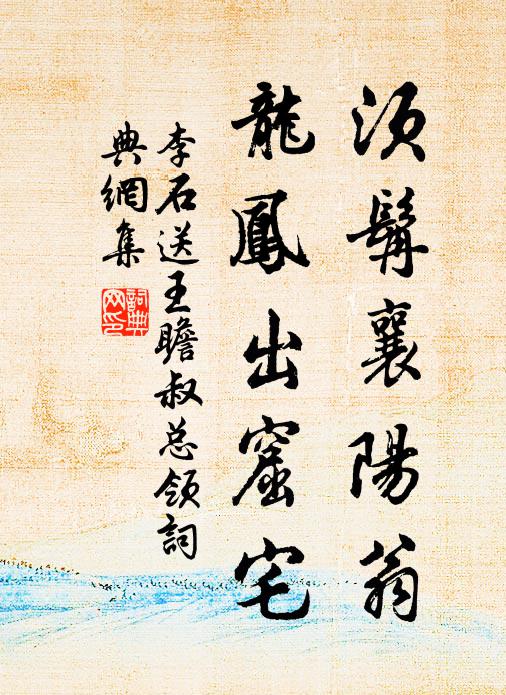 須髯襄陽翁
龍鳳出窟宅
李石送王瞻叔总領詞
典網集
詞典
网印